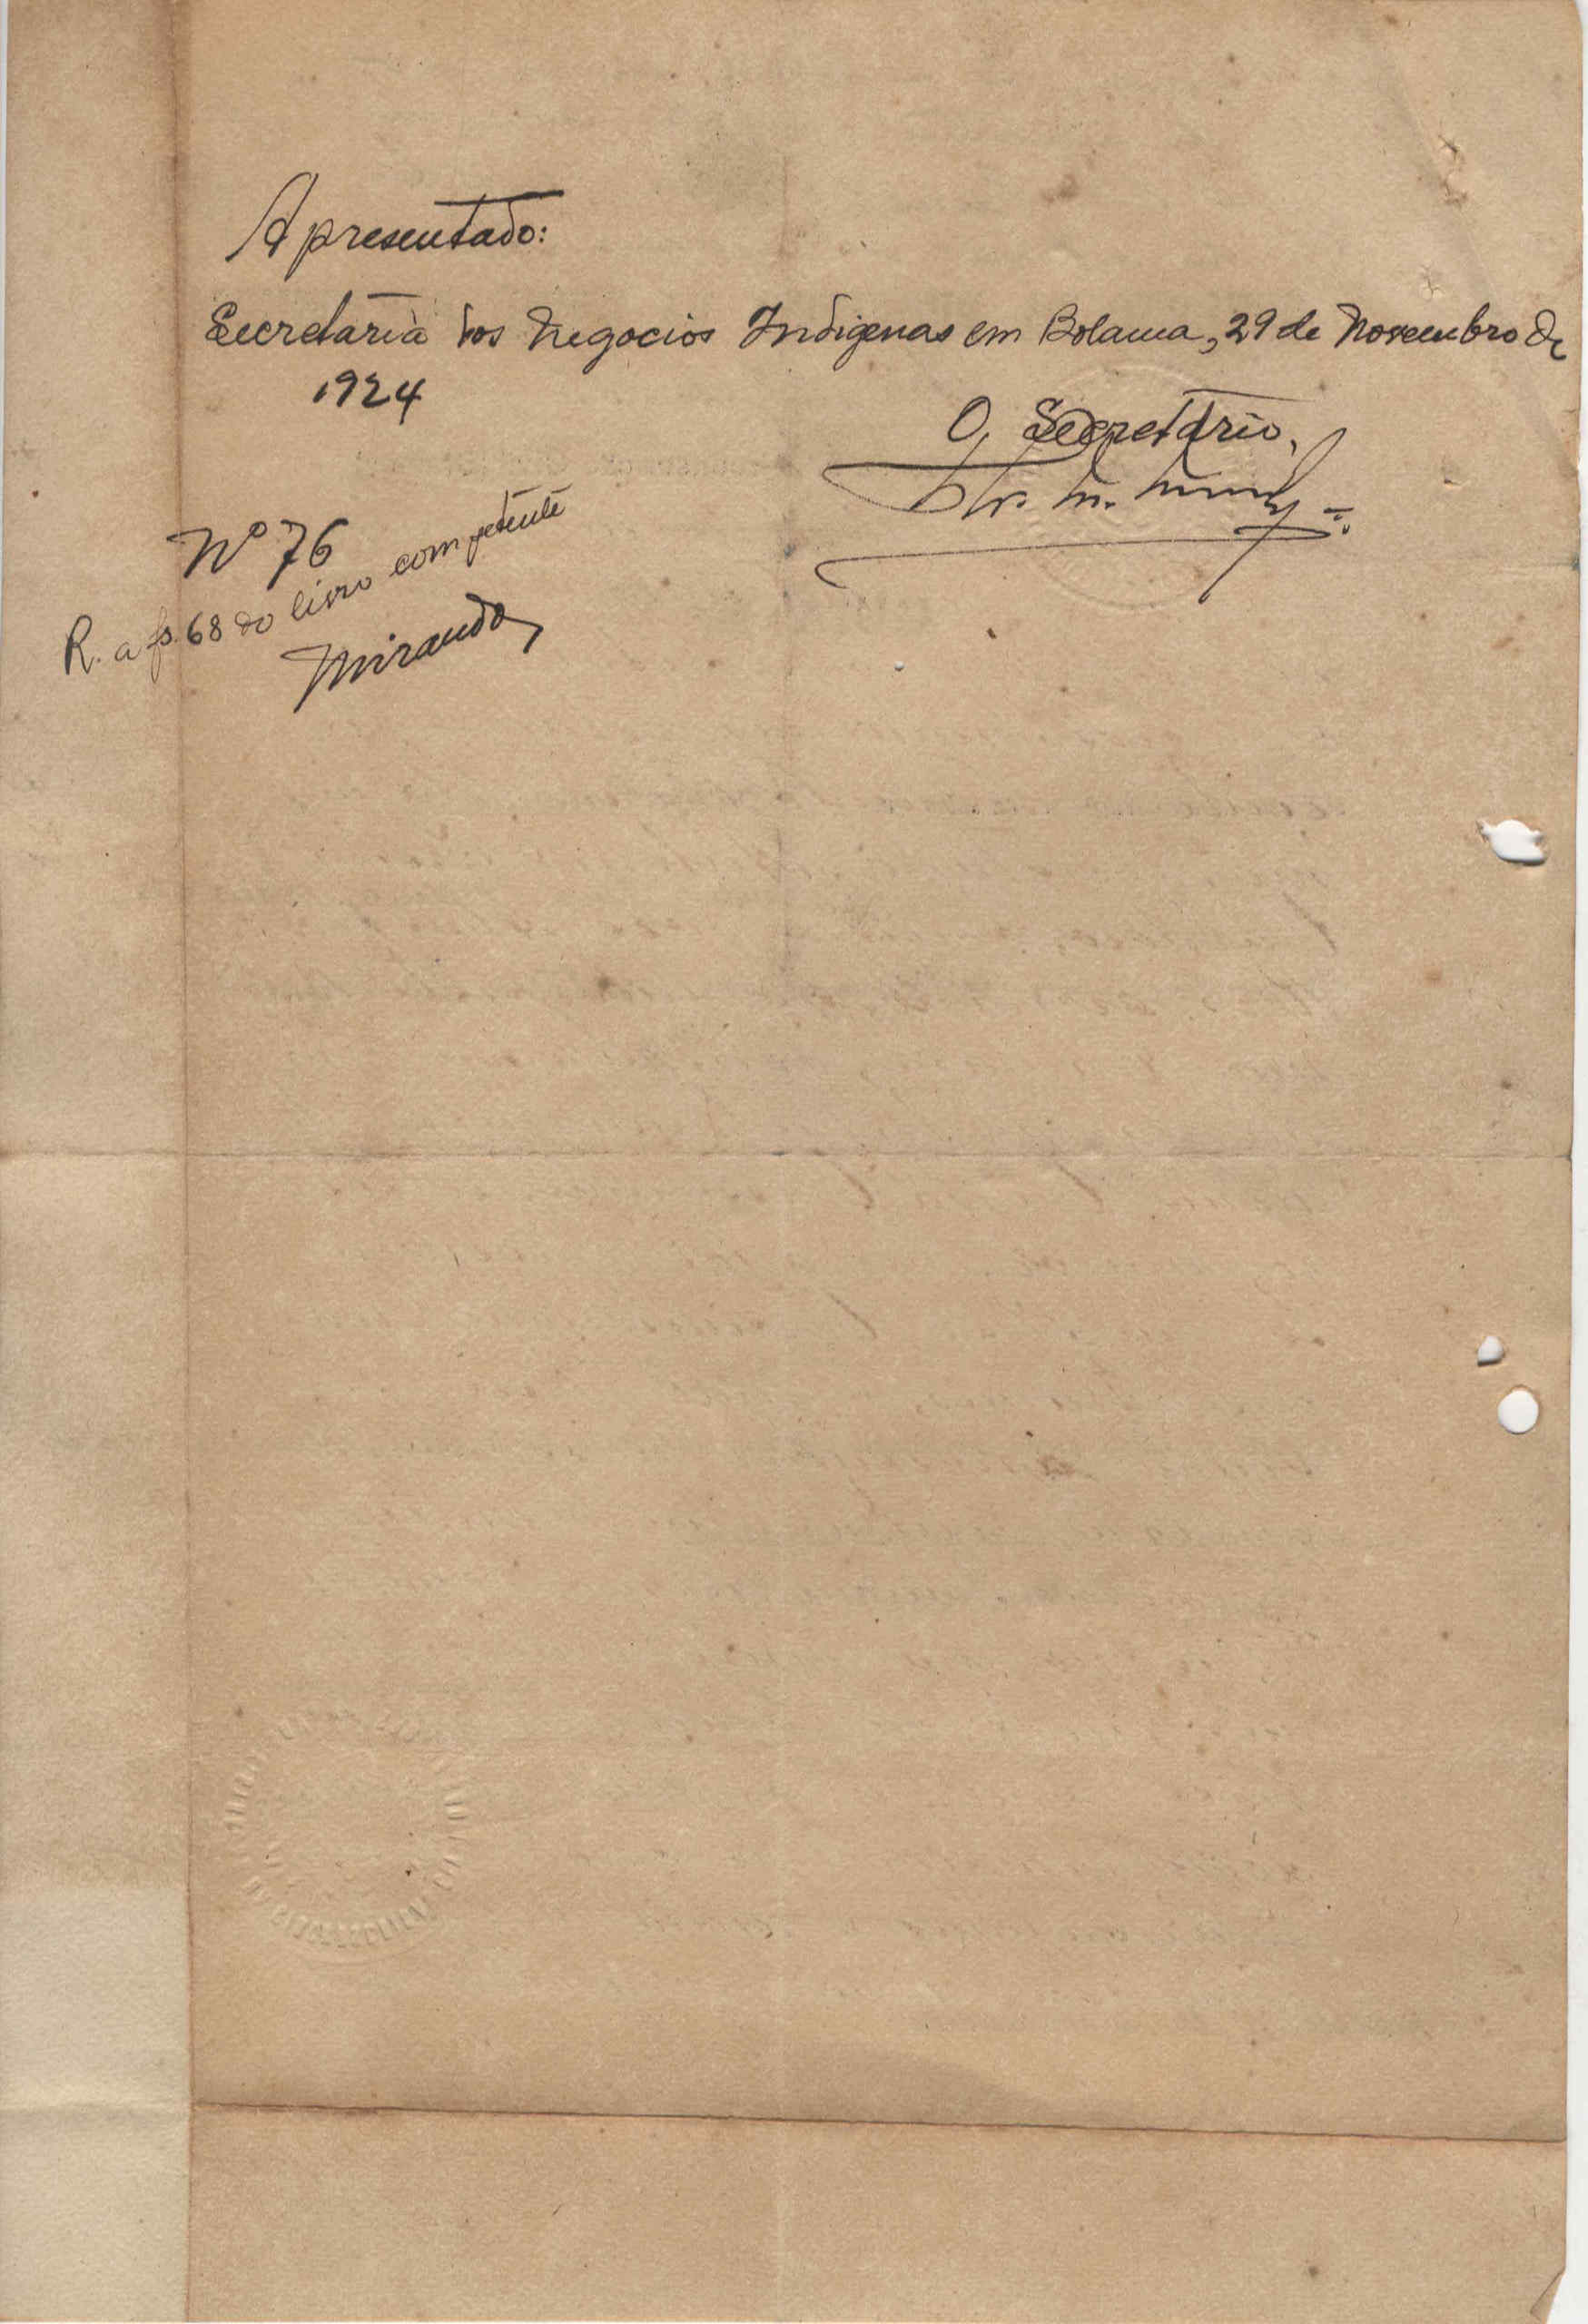 Apresentado:
Secretaria dos Negocios Indigenas em Bolama, 29 de Novembro de
1924
O Secretário,
Nº 76
R. a fs. 68 do livro competente
Miranda